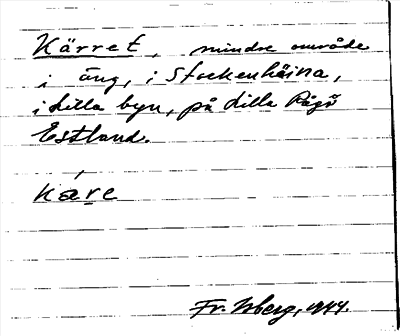 Kärret, mindre område
i äng, i Stockenhäina,
i Lilla byn, på Lilla Rågö
Estland.
káre
Fr. Isberg, 1944.